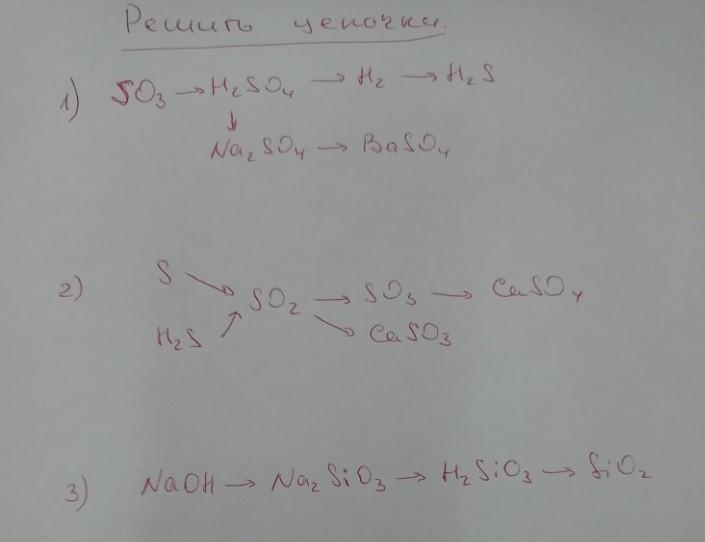 Решить цепочки.
1) SO₃ → H₂SO₄ → H₂ → H₂S
↓
Na₂SO₄ → BaSO₄
S ↘
2) SO₂ → SO₃ → CaSO₄
H₂S ↗ ↘ CaSO₃
3) NaOH → Na₂SiO₃ → H₂SiO₃ → SiO₂